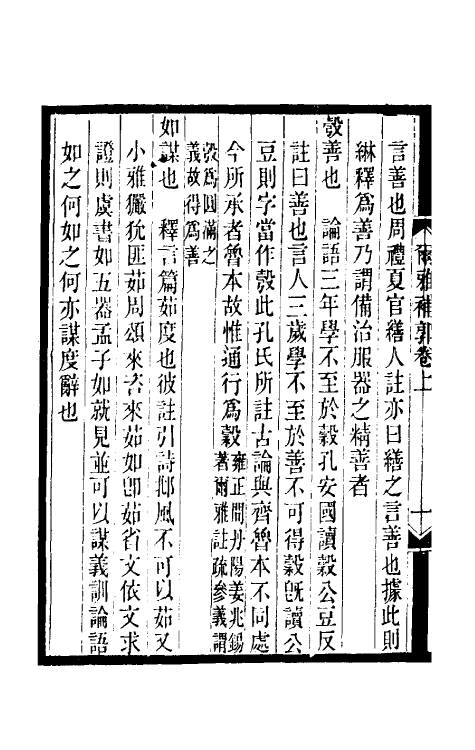 言善也周禮夏官繕人註亦曰繕之言善也據此則
綝釋爲善乃謂備治服器之精善者
彀善也　論語三年學不至於穀孔安國讀穀公豆反
註曰善也言人三歲學不至於善不可得穀既讀公
豆則字當作彀此孔氏所註古論與齊魯本不同處
今所承者魯本故惟通行爲穀雍正間丹陽姜兆錫著爾雅註疏參義謂
彀爲圓滿之義故得爲善
如謀也　釋言篇茹度也彼註引詩邶風不可以茹又
小雅玁狁匪茹周頌來咨來茹如卽茹省文依文求
證則虞書如五器孟子如就見並可以謀義訓論語
如之何如之何亦謀度辭也
爾雅補郭卷上
十